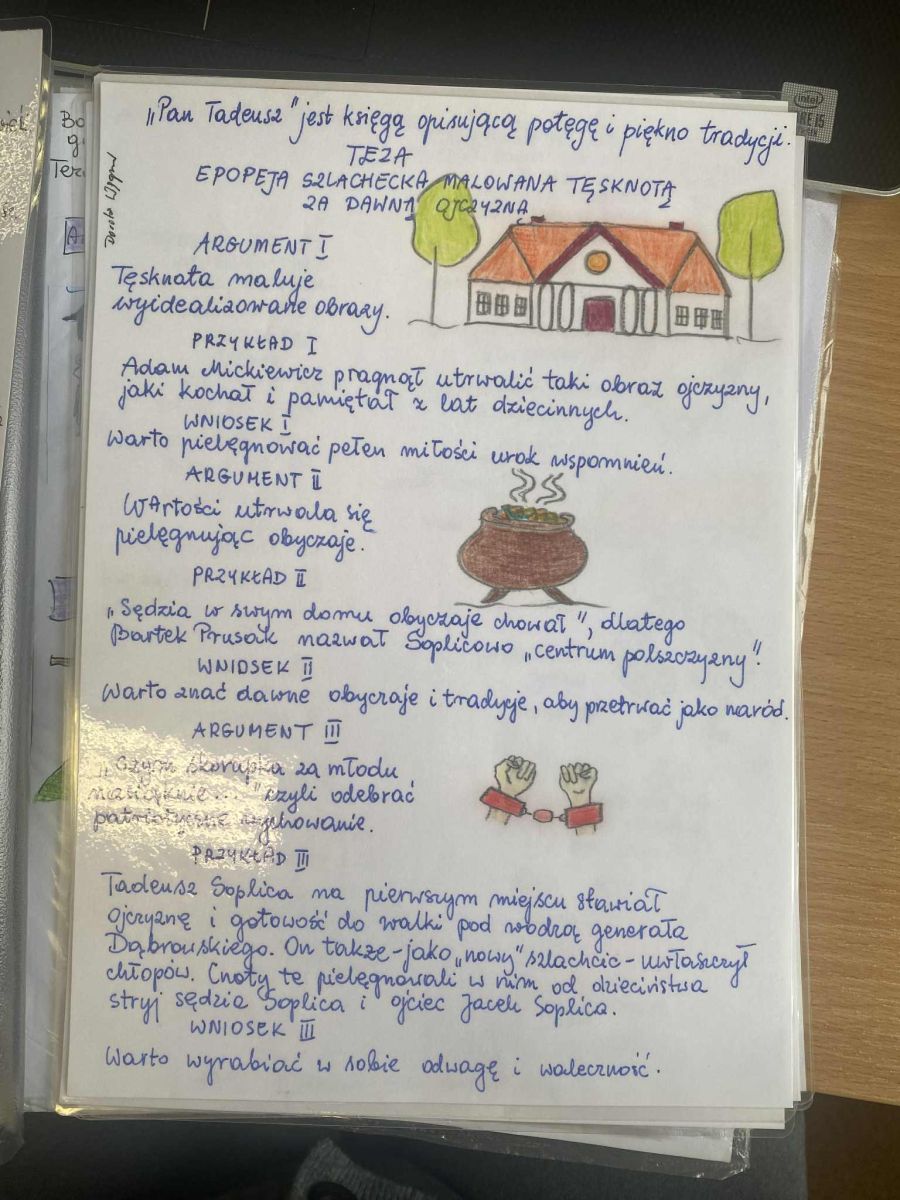 „Pan Tadeusz" jest księgą opisującą potęgę i piękno tradycji.
TEZA
EPOPEJA SZLACHECKA MALOWANA TĘSKNOTĄ
ZA DAWNĄ OJCZYZNĄ
ARGUMENT I
Tęsknota maluje
wyidealizowane obrazy.
PRZYKŁAD I
Adam Mickiewicz pragnął utrwalić taki obraz ojczyzny,
jaki kochał i pamiętał z lat dziecinnych.
WNIOSEK I
Warto pielęgnować pełen miłości urok wspomnień.
ARGUMENT II
Wartości utrwala się
pielęgnując obyczaje.
PRZYKŁAD II
„Sędzia w swym domu obyczaje chował", dlatego
Bartek Prusak nazwał Soplicowo „centrum polszczyzny".
WNIOSEK II
Warto znać dawne obyczaje i tradycje, aby przetrwać jako naród.
ARGUMENT III
„Czym skorupka za młodu
nasiąknie..." czyli odebrać
patriotyczne wychowanie.
PRZYKŁAD III
Tadeusz Soplica na pierwszym miejscu stawiał
ojczyznę i gotowość do walki pod wodzą generała
Dąbrowskiego. On także - jako „nowy" szlachcic - uwłaszczył
chłopów. Cnoty te pielęgnowali w nim od dzieciństwa
stryj sędzia Soplica i ojciec Jacek Soplica.
WNIOSEK III
Warto wyrabiać w sobie odwagę i waleczność.
Dorota
intel